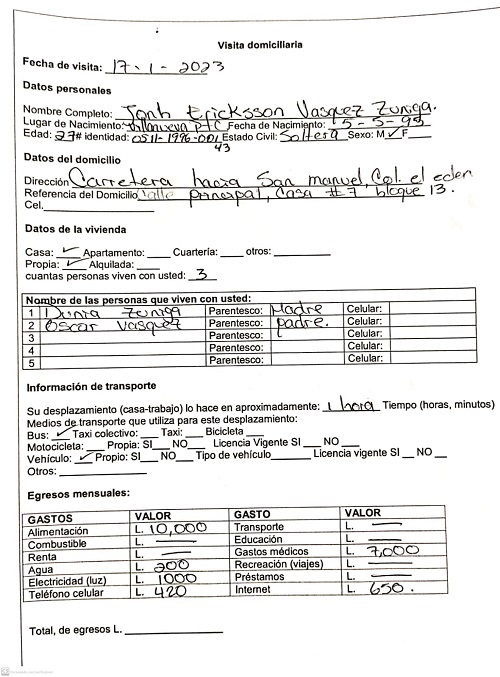 Visita domiciliaria
Fecha de visita: 17-1-2023
Datos personales
Nombre Completo: Jonh Ericksson Vasquez Zuniga.
Lugar de Nacimiento: Villanueva Fecha de Nacimiento: 5-5-95
Edad: 27 # identidad: 0511-1996-001 Estado Civil: Soltera Sexo: M ✓ F
43
Datos del domicilio
Dirección Carretera hania San manuel, Col. el eden
Referencia del Domicilio Calle Principal, Casa #7 bloque 13.
Cel.
Datos de la vivienda
Casa: ✓ Apartamento: ___ Cuartería: ___ otros: ___
Propia: ✓ Alquilada: ___
cuantas personas viven con usted: 3
Nombre de las personas que viven con usted:
1 Dunia Zuniga Parentesco: Madre Celular:
2 Oscar Vasquez Parentesco: padre. Celular:
3 Parentesco: Celular:
4 Parentesco: Celular:
5 Parentesco: Celular:
Información de transporte
Su desplazamiento (casa-trabajo) lo hace en aproximadamente: 1 hora Tiempo (horas, minutos)
Medios de transporte que utiliza para este desplazamiento:
Bus: ✓ Taxi colectivo: ___ Taxi: ___ Bicicleta ___
Motocicleta: ___ Propia: SI ___ NO ___ Licencia Vigente SI ___ NO ___
Vehículo: ✓ Propio: SI ___ NO ___ Tipo de vehículo ___ Licencia vigente SI ___ NO ___
Otros: ___
Egresos mensuales:
GASTOS VALOR GASTO VALOR
Alimentación L. 10,000 Transporte L. —
Combustible L. — Educación L. —
Renta L. — Gastos médicos L. 7,000
Agua L. 200 Recreación (viajes) L. —
Electricidad (luz) L. 1000 Préstamos L. —
Teléfono celular L. 420 Internet L. 650.
Total, de egresos L. ___